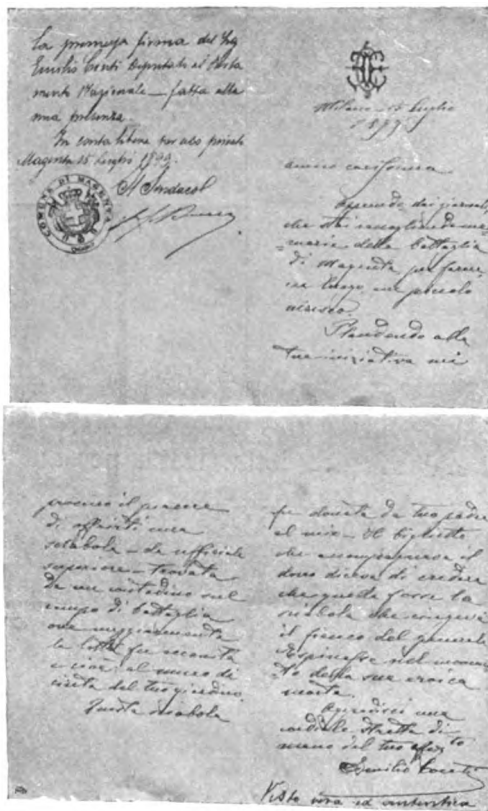 La premessa firma del Sig
Emilio Conti Deputato al Parla
mento Nazionale – fatta alla
mia presenza.
In carta libera per uso privato
Magenta 16 Luglio 1899.
Il Sindaco
COMUNE DI MAGENTA
Milano 15 Luglio
1899
amico carissimo
Apprendo dai giornali
che stai raccogliendo me
morie della battaglia
di Magenta per farne
un piccolo
museo.
Plaudendo alla
tua iniziativa mi
procuro il piacere
di offrirti una
sciabola – da ufficiale
superiore – trovata
da un contadino sul
campo di battaglia
ove maggiormente
la lotta fu accanita
e cioè al muro di
cinta del tuo giardino
Questa sciabola
fu donata da tuo padre
al mio – Il biglietto
che accompagnava il
dono diceva di credere
che quella fosse la
sciabola che cingeva
il fianco del generale
Espinasse nel momen
to della sua eroica
morte.
Aggradisci una
cordiale stretta di
mano del tuo aff to
Emilio Conti
Visto vera ed autentica